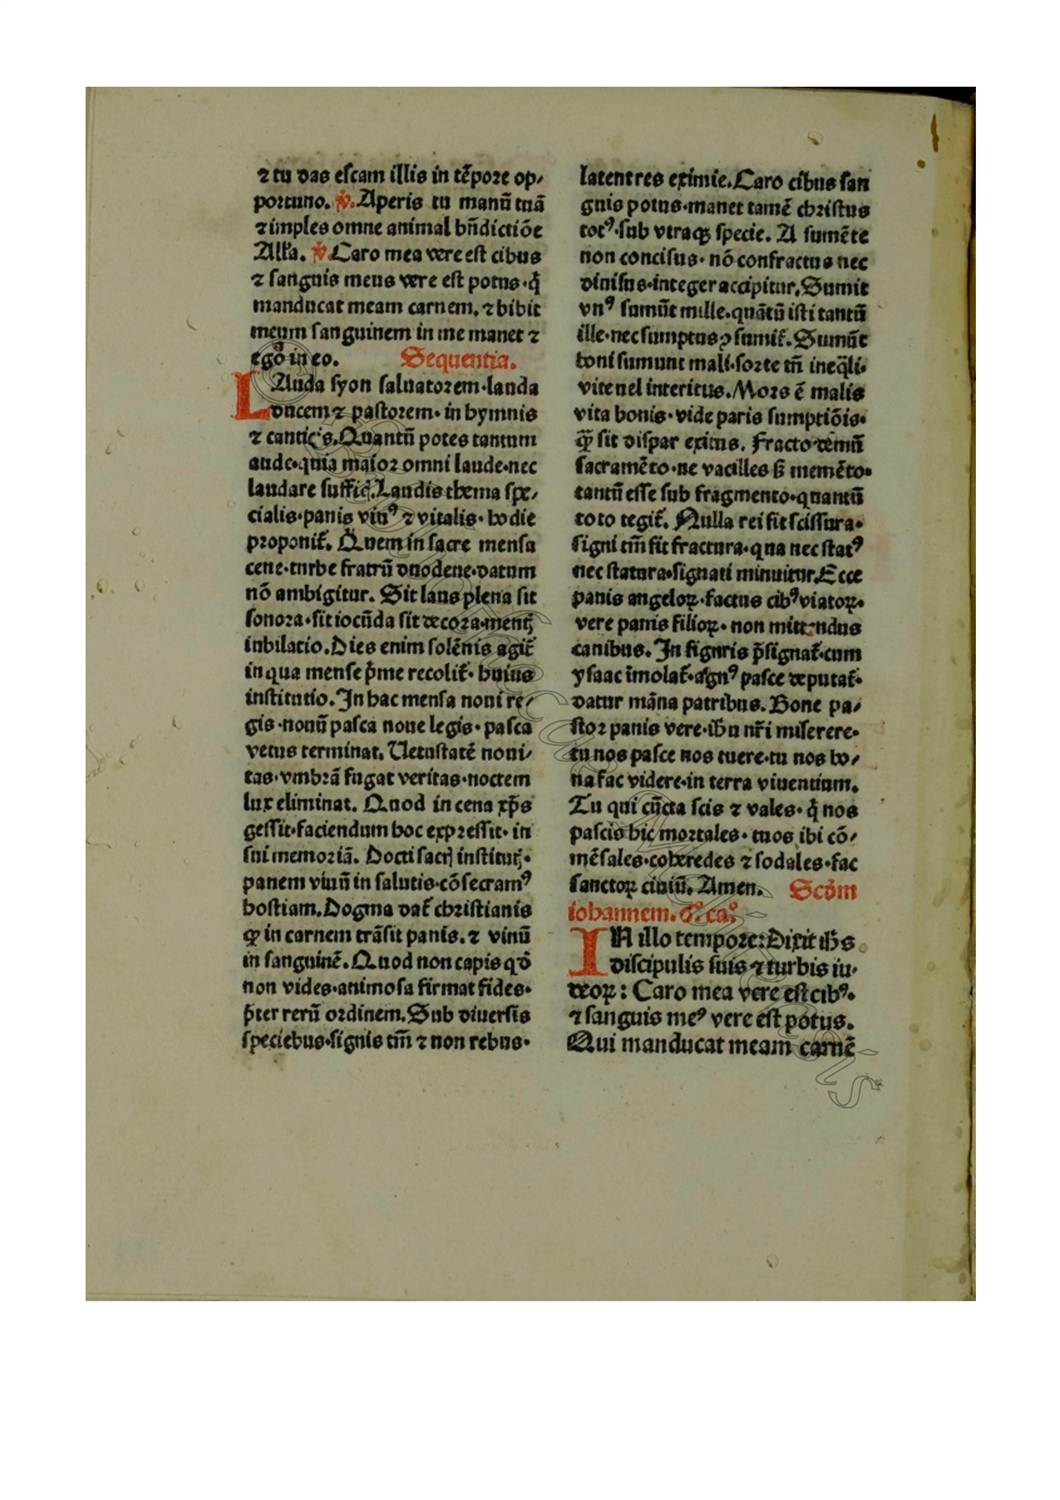 ⁊ tu das escam illis in tēpore op⸗
portuno. ℣. Aperis tu manū tuā
⁊ imples omne animal bn̄dictiōe
Alľa. ℣. Caro mea vere est cibus
⁊ sanguis meus vere est potus·q̄
manducat meam carnem, ⁊ bibit
meum sanguinem in me manet ⁊
ego in eo. Sequentia.
LAuda syon saluatorem·lauda
ducem ⁊ pastorem· in hymnis
⁊ cantic's. Quantū potes tantum
aude·quia maior omni laude·nec
laudare suffiç. Laudis thema spe⸗
cialis·panis viuꝰ ⁊ vitalis· hodie
proponit̃. Quem in sacre mensa
cene·turbe fratrū duodene·datum
nō ambigitur. Sit laus plena sit
sonora·sit iocūda sit decora·ment
iubilatio. Dies enim solēnis agit̃
in qua mense p̄me recolit̃· huius
institutio. In hac mensa noui re⸗
gis·nouū pasca noue legis· pasca
vetus terminat. Uetustatē noui⸗
tas·vmbrā fugat veritas·noctem
lux eliminat. Quod in cena xp̄s
gessit·faciendum hoc expressit· in
sui memoriā. Docti sacꝭ institutꝭ·
panem viuū in salutis·cōsecramꝰ
hostiam. Dogma dat̃ christianis
ꝙ in carnem trāsit panis. ⁊ vinū
in sanguinē. Quod non capis qd̄
non vides·animosa firmat fides·
p̄ter rerū ordinem. Sub diuersis
speciebus·signis tm̄ ⁊ non rebus·
latent res eximie. Caro cibus san
guis potus·manet tamē christus
totꝰ·sub vtraqꝫ specie. A sumēte
non concisus· nō confractus nec
diuisus·integer accipitur. Sumit
vnꝰ sumūt mille·quātū isti tantū
ille·nec sumptus ꝯsumit̃. Sumūt
boni sumunt mali·sorte tn̄ ineq̄li·
vite uel interitus. Mors ē malis
vita bonis·vide paris sumptiōis·
ꝙ̄ sit dispar exitus. Fracto demū
sacramēto·ne vacilles s̄ memēto·
tantū esse sub fragmento·quantū
toto tegit̃. Nulla rei fit scissura·
signi tm̄ fit fractura·qua nec statꝰ
nec statura·signati minuitur. Ecce
panis angeloꝝ·factus cibꝰ viatoꝝ·
vere panis filioꝝ· non mittendus
canibus. In figuris p̄signat̃·cum
ysaac īmolat̃·agnꝰ pasce deputat̃·
datur māna patribus. Bone pa⸗
stor panis vere·ihu nr̄i miserere·
tu nos pasce nos tuere·tu nos bo⸗
na fac videre·in terra viuentium.
Tu qui cūcta scis ⁊ vales· q̄ nos
pascis hic mortales· tuos ibi cō⸗
mēsales·coheredes ⁊ sodales·fac
sanctoꝝ ciuiū. Amen. Scd̄m
iohannem. 6º. caº.
IN illo tempore: Dixit ihs
discipulis suis ⁊ turbis iu·
deoꝝ: Caro mea vere est cibꝰ·
⁊ sanguis meꝰ vere est potus.
Qui manducat meam carnē